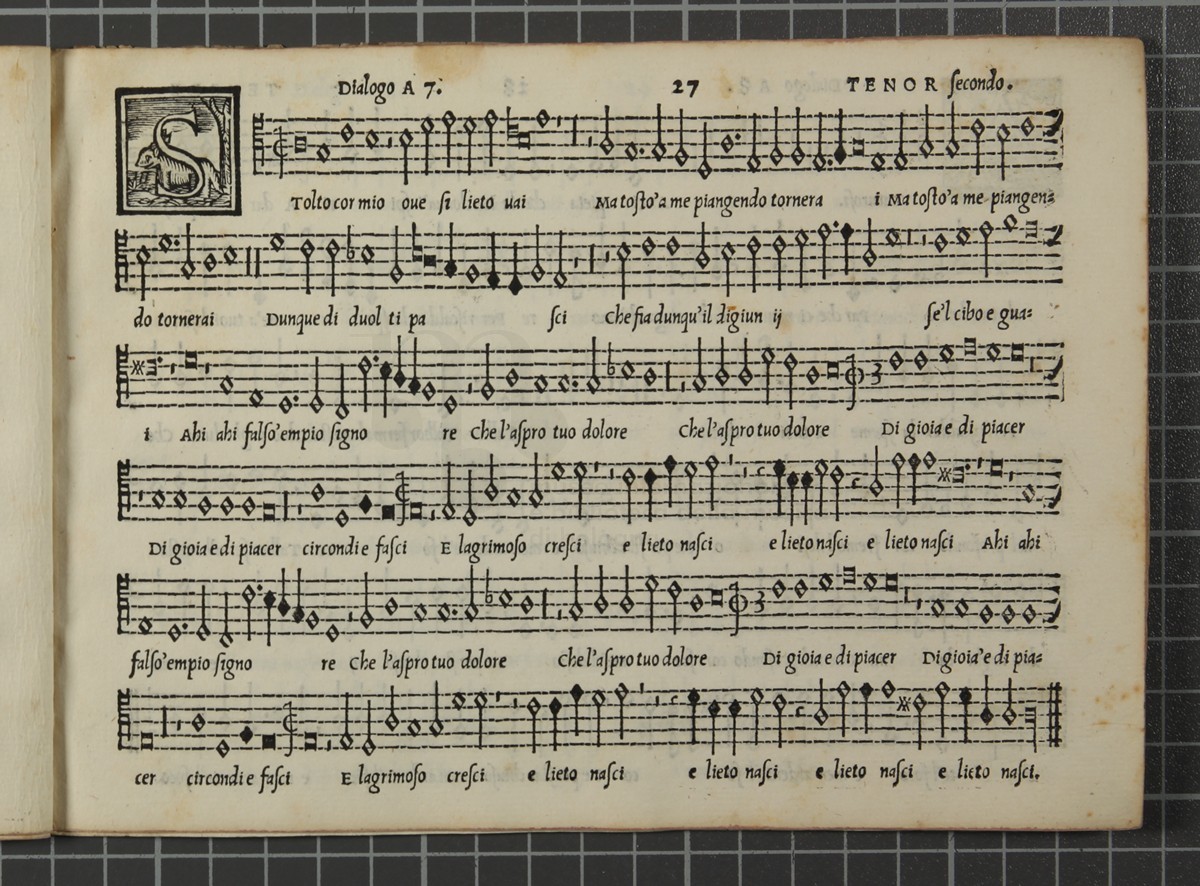 Dialogo A 7. 27 TENOR ſecondo.
S Tolto cor mio oue ſi lieto uai Ma toſto'a me piangendo tornera i Ma toſto'a me piangen=
do tornerai Dunque di duol ti pa ſci Che fia dunqu'il digiun ij ſe'l cibo e gua=
i Ahi ahi falſo'empio ſigno re Che l'aſpro tuo dolore Che l'aſpro tuo dolore Di gioia e di piacer
Di gioia e di piacer circondi e faſci E lagrimoſo creſci e lieto naſci e lieto naſci e lieto naſci Ahi ahi
falſo'empio ſigno re Che l'aſpro tuo dolore Che l'aſpro tuo dolore Di gioia e di piacer Di gioia'e di pia=
cer circondi e faſci E lagrimoſo creſci e lieto naſci e lieto naſci e lieto naſci e lieto naſci.